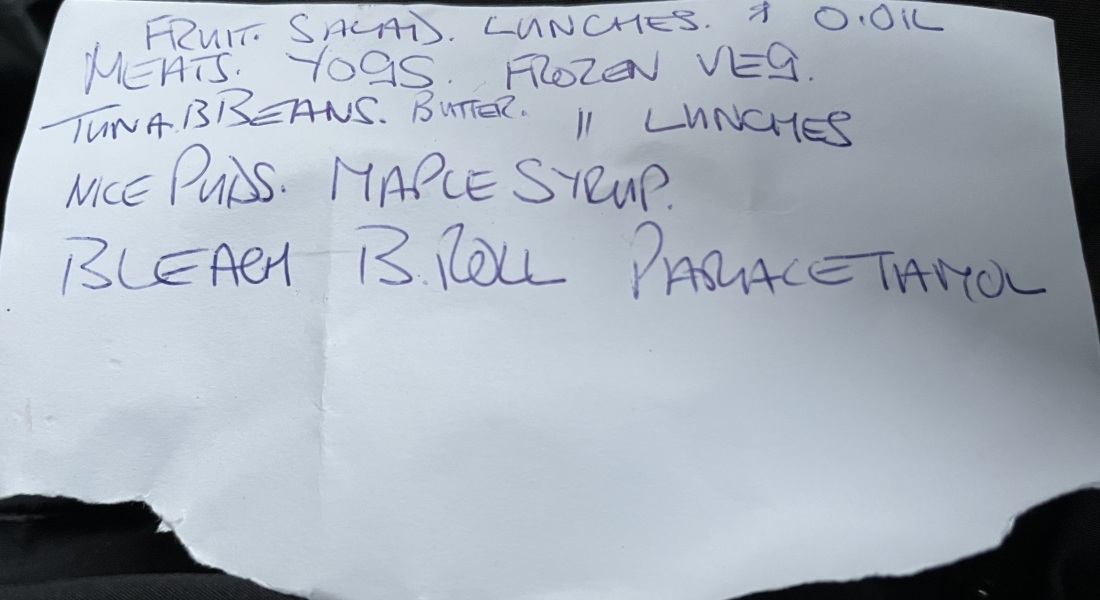 FRUIT. SALAD. LUNCHES. O.OIL
MEATS. YOGS. FROZEN VEG.
TUNA. BBEANS. BUTTER. 11 LUNCHES
NICE PUDS. MAPLE SYRUP.
BLEACH B.ROLL PARACETAMOL